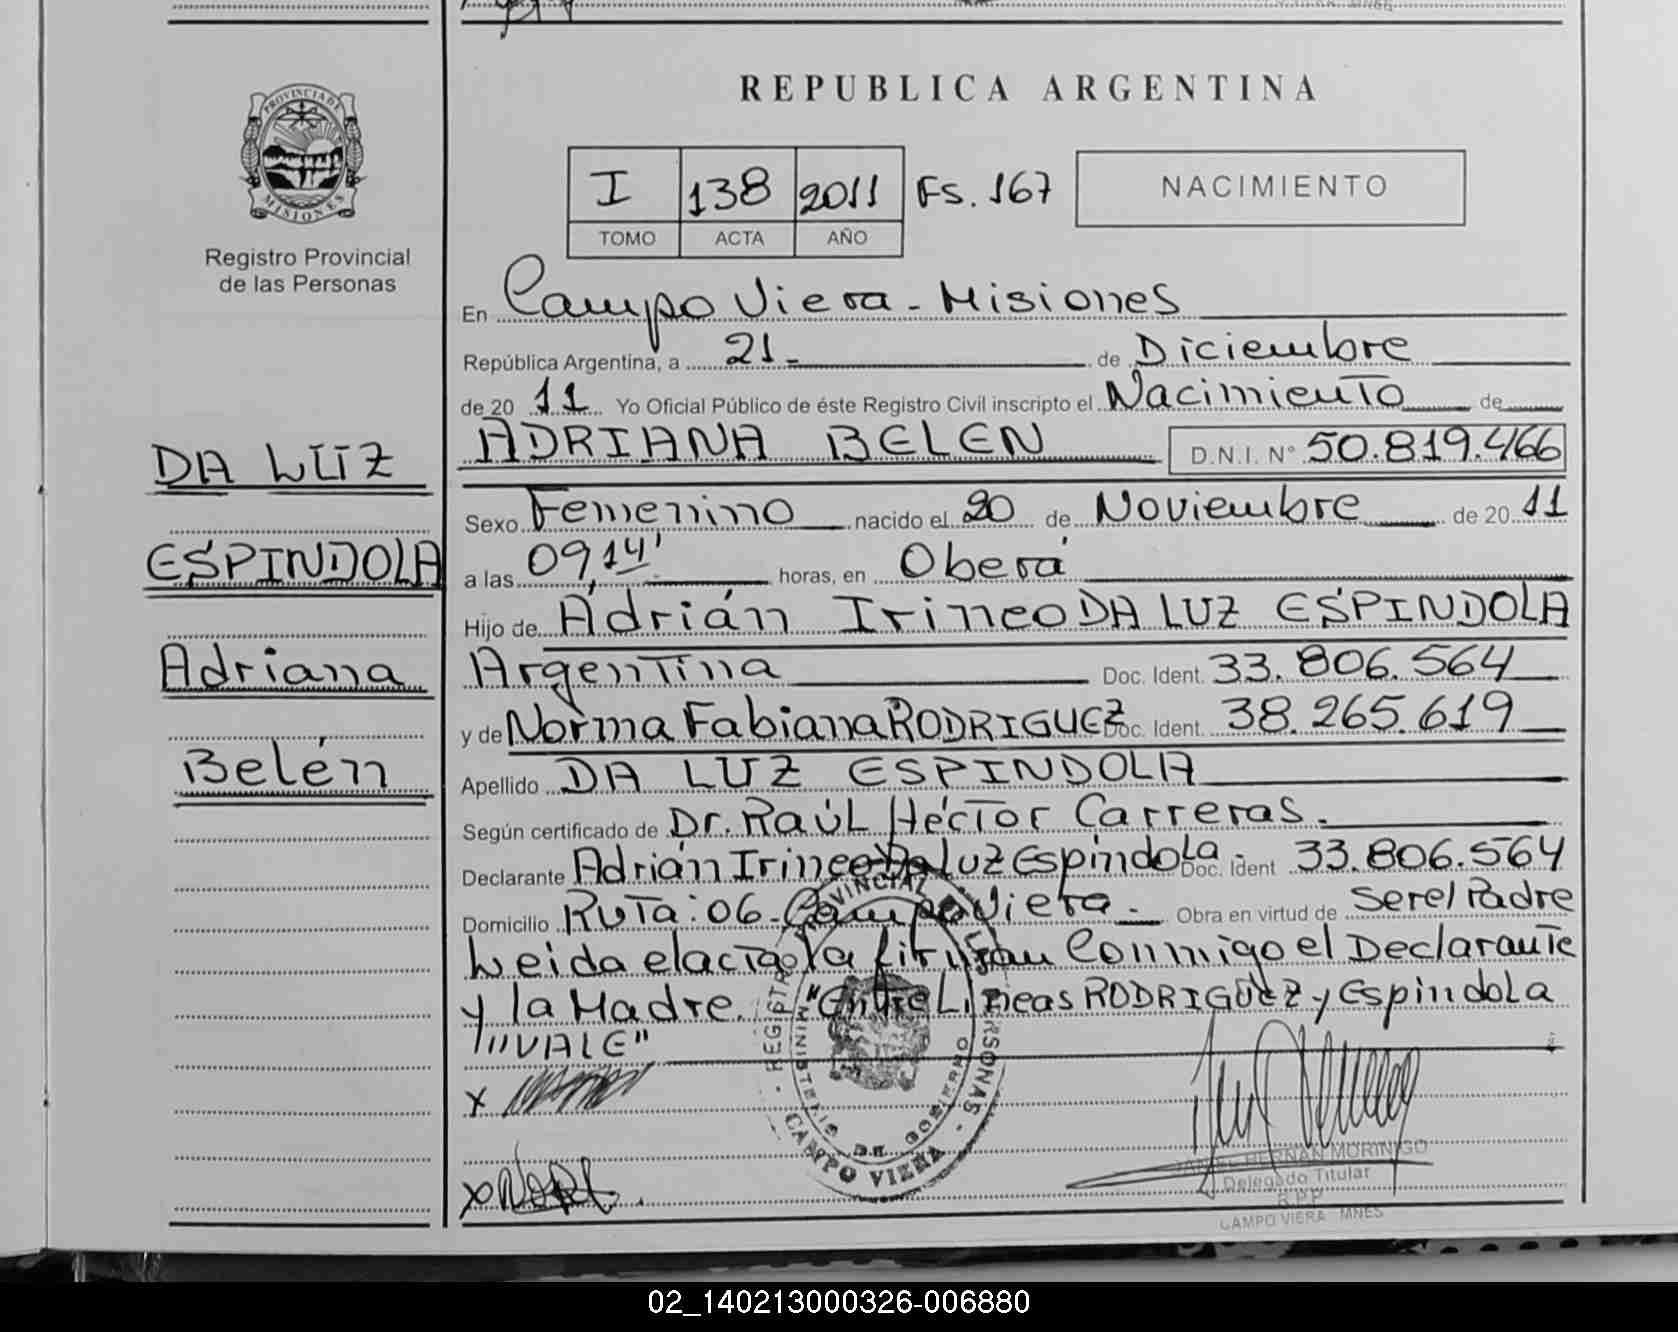 REPUBLICA ARGENTINA
PROVINCIA DE
MISIONES
Registro Provincial
de las Personas
I 138 2011 Fs. 167
TOMO ACTA AÑO
NACIMIENTO
En Campo Viera - Misiones
República Argentina, a 21 - de Diciembre
de 20 11 Yo Oficial Público de éste Registro Civil inscripto el Nacimiento de
ADRIANA BELEN D.N.I. N° 50.819.466
DA LUZ
Sexo Femenino nacido el 20 de Noviembre de 20 11
ESPINDOLA
a las 09,14' horas, en Oberá
Hijo de Adrián Irineo DA LUZ ESPINDOLA
Adriana
Argentina Doc. Ident. 33.806.564
y de Norma Fabiana RODRIGUEZ Doc. Ident. 38.265.619
Belén
Apellido DA LUZ ESPINDOLA
Según certificado de Dr. Raúl Héctor Carreras.
Declarante Adrián Irineo Da Luz Espindola - Doc. Ident 33.806.564
Domicilio Ruta: 06 - Campo Viera - Obra en virtud de Ser el Padre
Leida el acta la firman Conmigo el Declarante
y la Madre. "Entre Lineas RODRIGUEZ y Espindola
"VALE"
X
X
REGISTRO PROVINCIAL DE LAS PERSONAS - CAMPO VIERA -
MINISTERIO DE GOBIERNO
HERNAN MORINIGO
Delegado Titular
R.P.P
CAMPO VIERA MNES
02_140213000326-006880